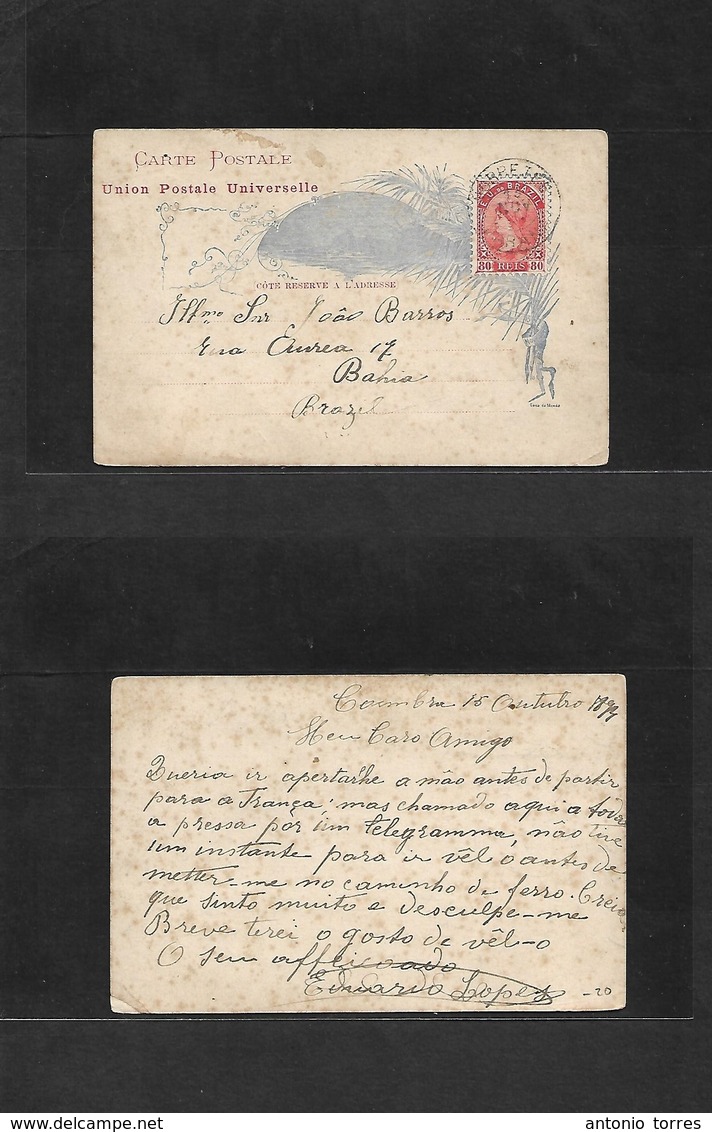 CARTE POSTALE
Union Postale Universelle
E.U. DO BRAZIL
80 REIS 80
CÔTE RESERVE A L'ADRESSE
Illmo Snr João Barros
rua Eurea 17
Bahia
Brazil
Coimbra 15 Outubro 1897
Meu Caro Amigo
Queria ir apertarlhe a mão antes de partir
para a França; mas chamado aqui a toda
a pressa por um telegramma, não tive
um instante para ir vêl o antes de
metter-me no caminho de ferro. Creia
que sinto muito e desculpe-me
Breve terei o gosto de vêl-o
O seu affeiçoado
Eduardo Lopes
-20
antonio torres